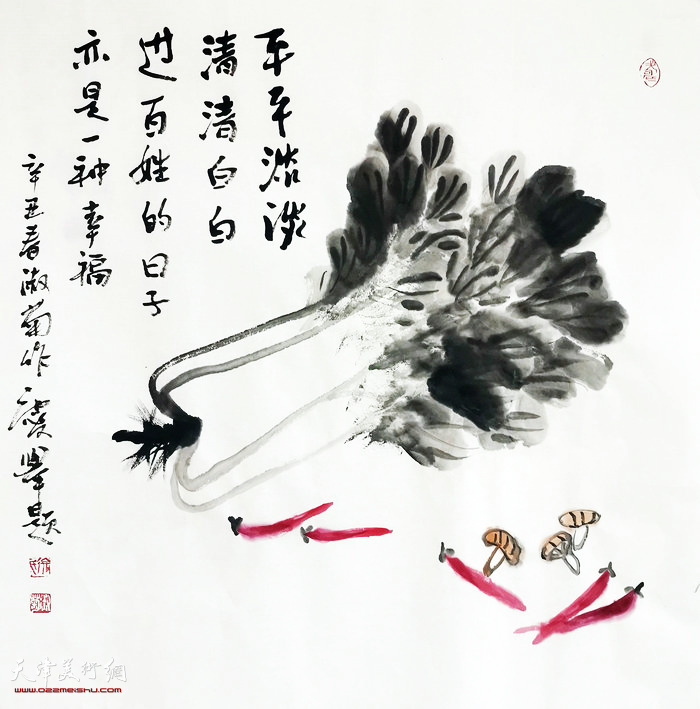 平平淡淡
清清白白
过百姓的日子
亦是一种幸福
辛丑春淑菊作慶举题
天津美術網
www.022meishu.com